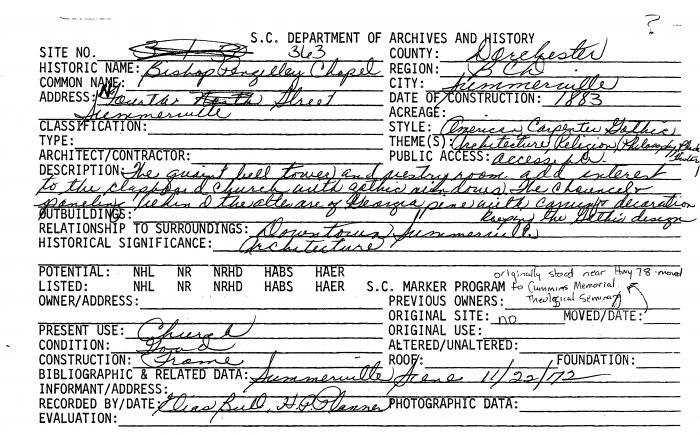 ?
S.C. DEPARTMENT OF ARCHIVES AND HISTORY
SITE NO. 363 COUNTY: Dorchester
HISTORIC NAME: Bishop Pengelley Chapel REGION: BCD
COMMON NAME: CITY: Summerville
ADDRESS: N. Fourth North Street DATE OF CONSTRUCTION: 1883
Summerville ACREAGE:
CLASSIFICATION: STYLE: American Carpenter Gothic
TYPE: THEME(S): Architecture, Religion, Philosophy
ARCHITECT/CONTRACTOR: PUBLIC ACCESS: accessible
DESCRIPTION: The quaint bell tower and vestry room add interest
to the clapboard church with gothic windows. The Chancel &
paneling behind the altar are of Georgia pine with carving & decoration
OUTBUILDINGS: keeping the Gothic design
RELATIONSHIP TO SURROUNDINGS: Downtown Summerville
HISTORICAL SIGNIFICANCE: Architecture
POTENTIAL: NHL NR NRHD HABS HAER originally stood near Hwy 78-moved
LISTED: NHL NR NRHD HABS HAER S.C. MARKER PROGRAM to Cummins Memorial
OWNER/ADDRESS: PREVIOUS OWNERS: Theological Seminary
ORIGINAL SITE: no MOVED/DATE:
PRESENT USE: Church ORIGINAL USE:
CONDITION: Good ALTERED/UNALTERED:
CONSTRUCTION: Frame ROOF: FOUNDATION:
BIBLIOGRAPHIC & RELATED DATA: Summerville Scene 11/22/72
INFORMANT/ADDRESS:
RECORDED BY/DATE: Elias Bull, H.P. Planner PHOTOGRAPHIC DATA:
EVALUATION: